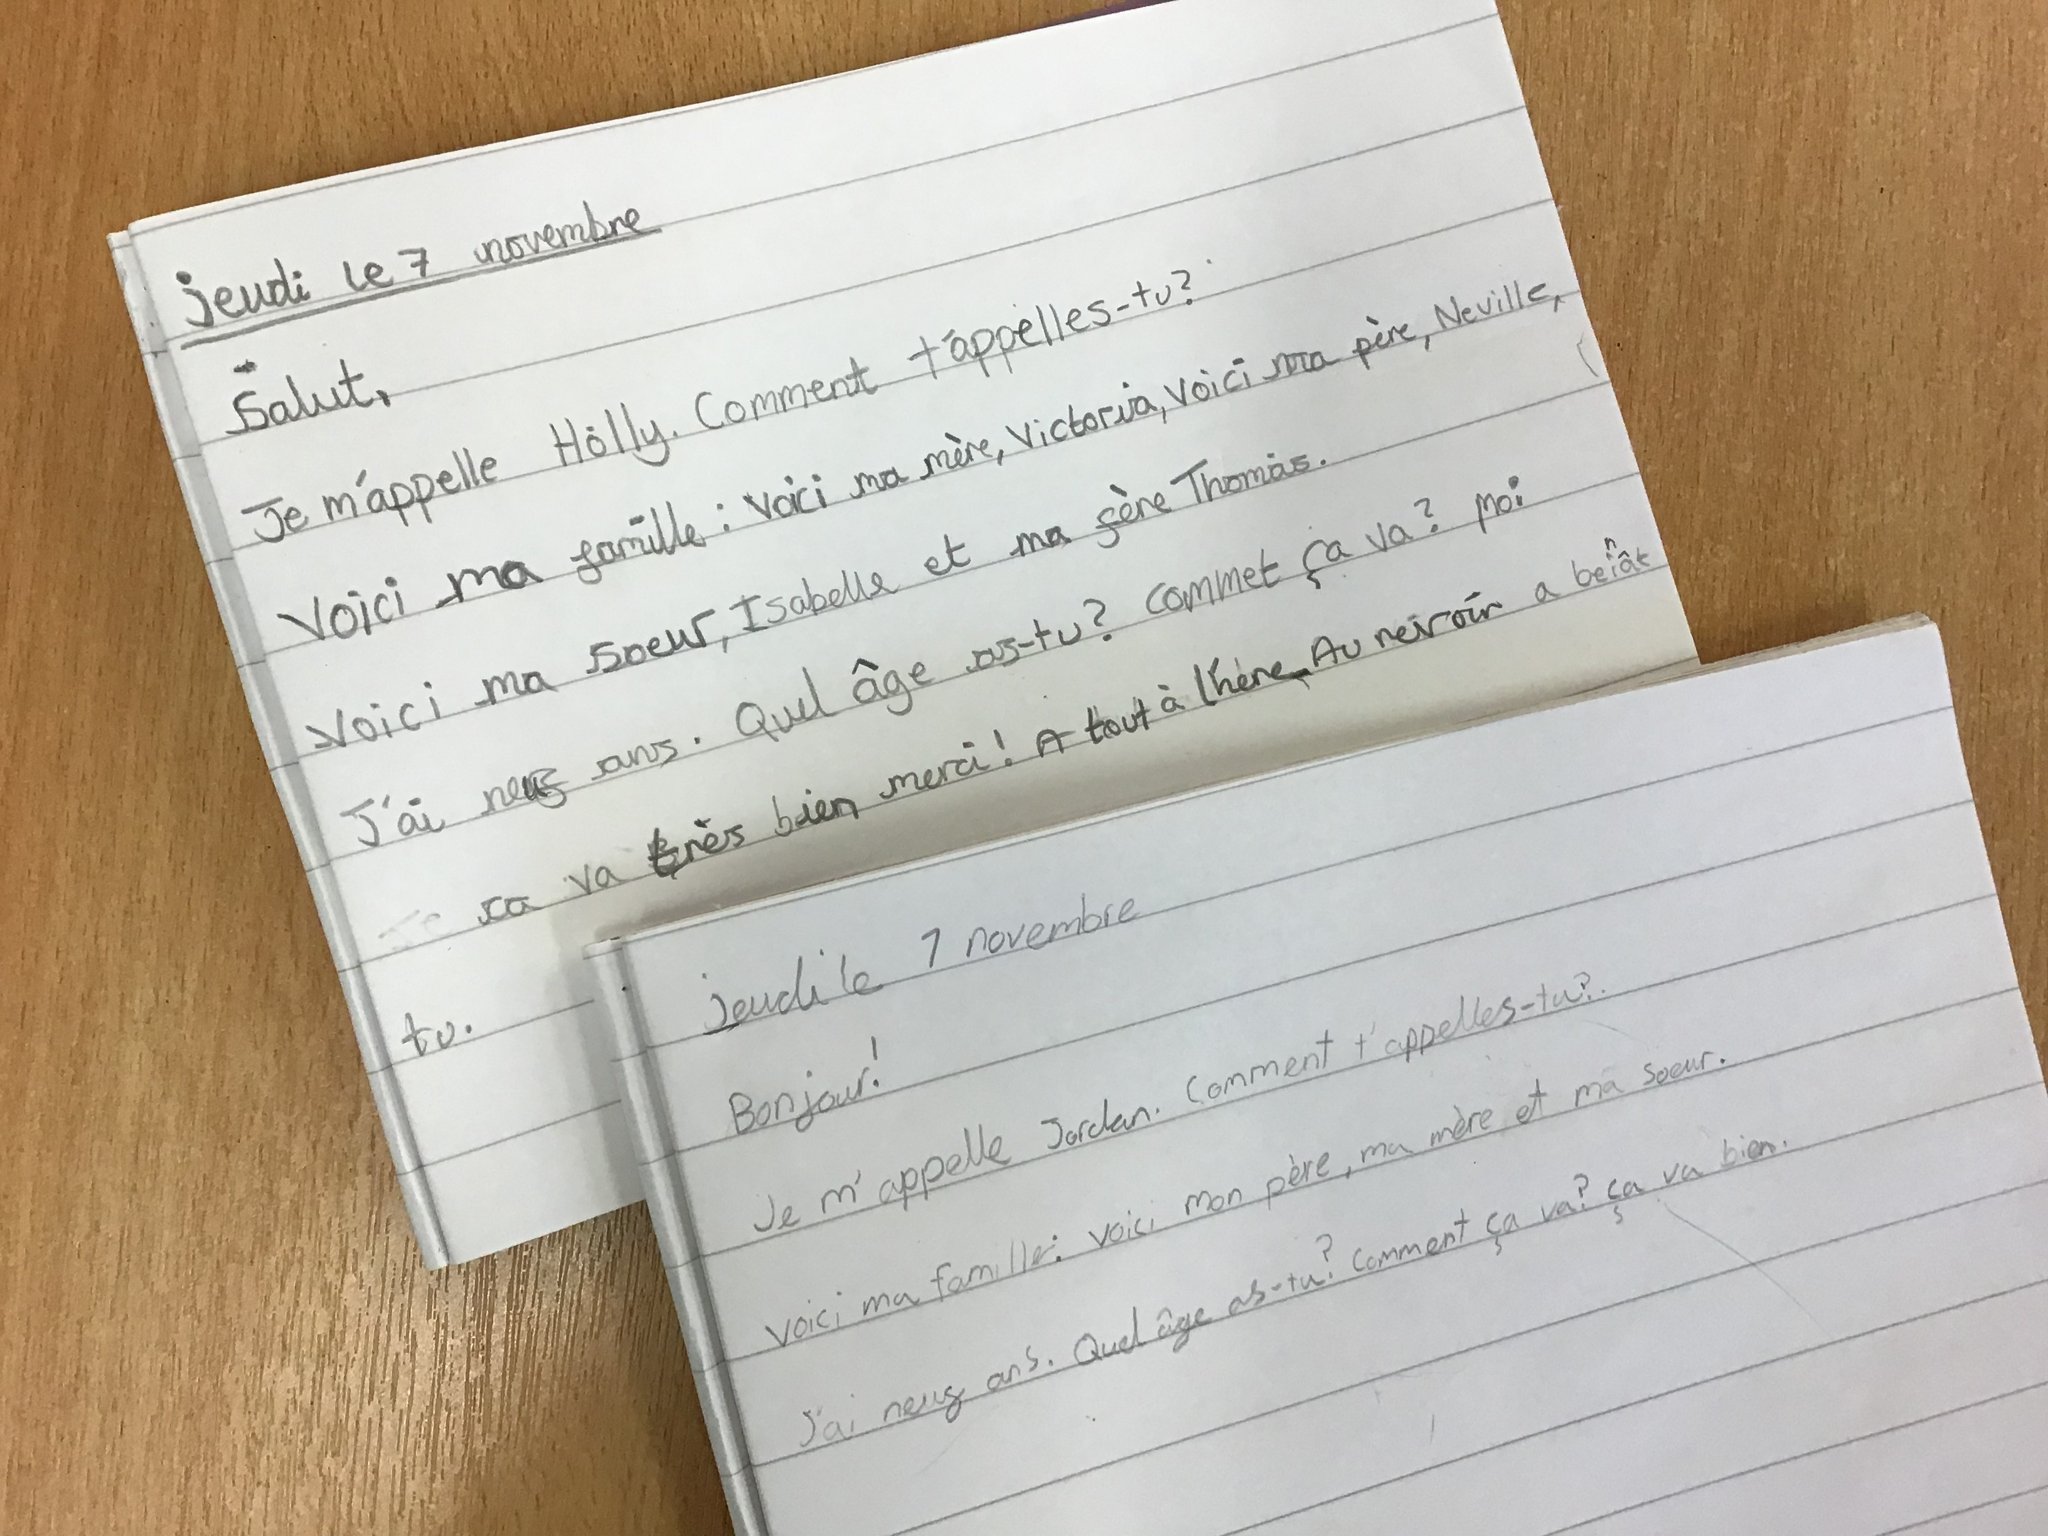 jeudi le 7 novembre
Salut,
Je m'appelle Holly. Comment t'appelles-tu?
Voici ma famille: voici ma mère, Victoria, voici ma père, Neville,
Voici ma soeur, Isabelle et ma fère Thomas.
J'ai neuf ans. Quel âge as-tu? Commet ça va? Moi
sa va très bien merci! A tout à l'hère. Au reivoir a
tu.
jeudi le 7 novembre
Bonjour!
Je m'appelle Jordan. Comment t'appelles-tu?
Voici ma famille: voici mon père, ma mère et ma soeur.
J'ai neuf ans. Quel âge as-tu? Comment ça va? ça va bien.